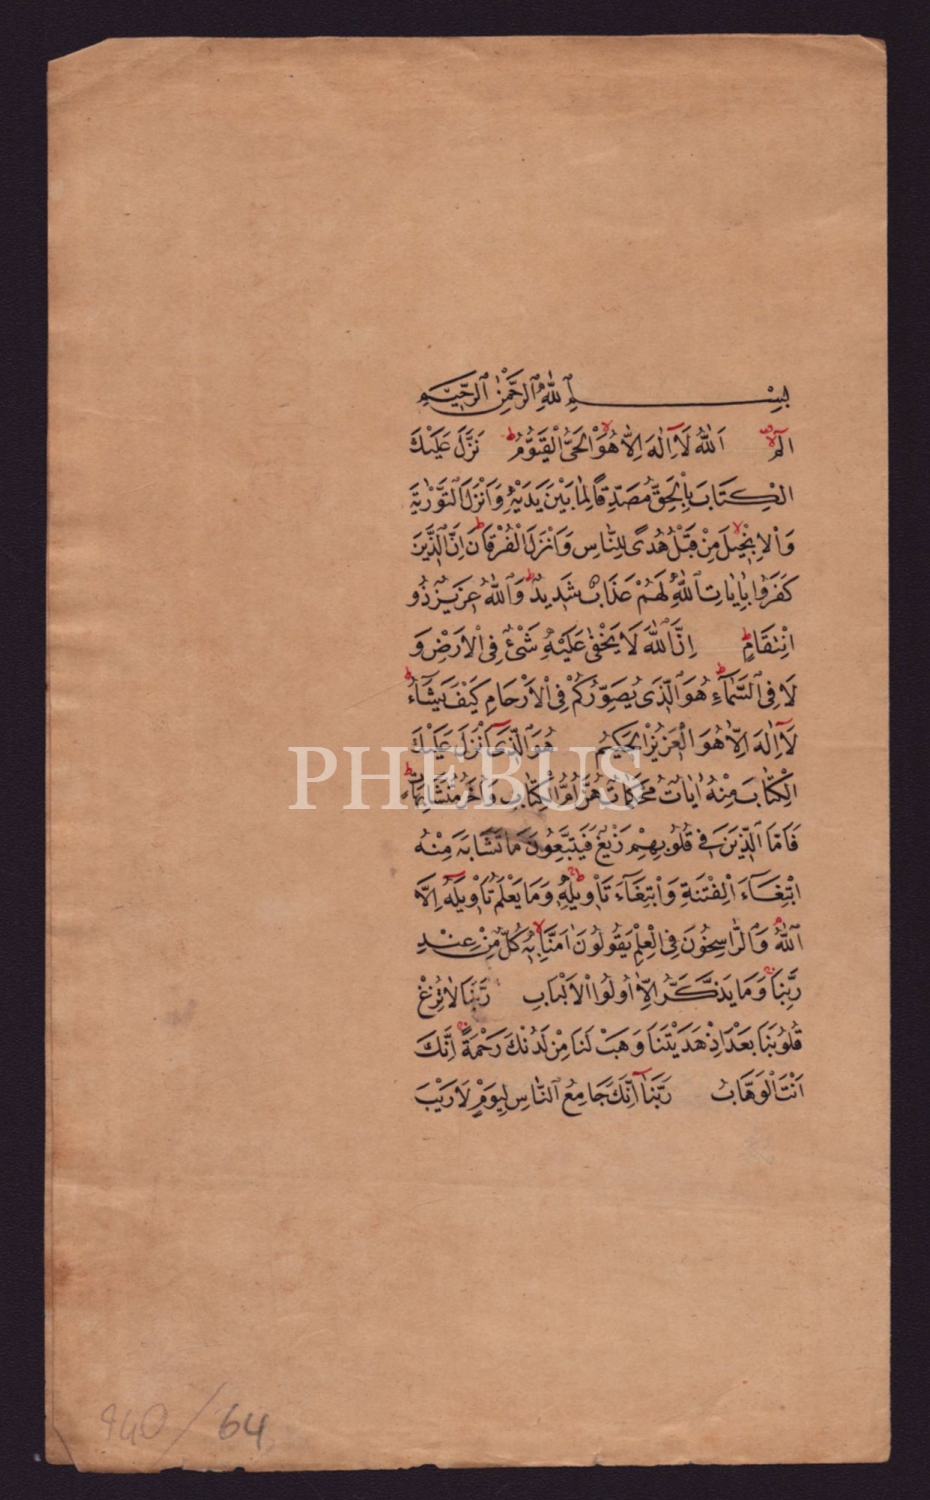 بِسْمِ ٱللّٰهِ ٱلرَّحْمٰنِ ٱلرَّحِيمِ
الٓمٓ اَللّٰهُ لَآ اِلٰهَ اِلَّا هُوَ الْحَىُّ الْقَيُّومُ نَزَّلَ عَلَيْكَ
الْكِتَابَ بِالْحَقِّ مُصَدِّقًا لِمَا بَيْنَ يَدَيْهِ وَاَنْزَلَ التَّوْرٰيةَ
وَالْاِنْجِيلَ مِنْ قَبْلُ هُدًى لِلنَّاسِ وَاَنْزَلَ الْفُرْقَانَ اِنَّ الَّذِينَ
كَفَرُوا بِاٰيَاتِ اللّٰهِ لَهُمْ عَذَابٌ شَدِيدٌ وَاللّٰهُ عَزِيزٌ ذُو
انْتِقَامٍ اِنَّ اللّٰهَ لَا يَخْفٰى عَلَيْهِ شَىْءٌ فِى الْاَرْضِ وَ
لَا فِى السَّمَآءِ هُوَ الَّذِى يُصَوِّرُكُمْ فِى الْاَرْحَامِ كَيْفَ يَشَآءُ
لَآ اِلٰهَ اِلَّا هُوَ الْعَزِيزُ الْحَكِيمُ هُوَ الَّذِىٓ اَنْزَلَ عَلَيْكَ
الْكِتَابَ مِنْهُ اٰيَاتٌ مُحْكَمَاتٌ هُنَّ اُمُّ الْكِتَابِ وَاُخَرُ مُتَشَابِهَاتٌ
فَاَمَّا الَّذِينَ فِى قُلُوبِهِمْ زَيْغٌ فَيَتَّبِعُونَ مَا تَشَابَهَ مِنْهُ
ابْتِغَآءَ الْفِتْنَةِ وَابْتِغَآءَ تَاْوِيلِهِ وَمَا يَعْلَمُ تَاْوِيلَهُٓ اِلَّا
اللّٰهُ وَالرَّاسِخُونَ فِى الْعِلْمِ يَقُولُونَ اٰمَنَّا بِهِ كُلٌّ مِنْ عِنْدِ
رَبِّنَا وَمَا يَذَّكَّرُ اِلَّا اُولُوا الْاَلْبَابِ رَبَّنَا لَا تُزِغْ
قُلُوبَنَا بَعْدَ اِذْ هَدَيْتَنَا وَهَبْ لَنَا مِنْ لَدُنْكَ رَحْمَةً اِنَّكَ
اَنْتَ الْوَهَّابُ رَبَّنَآ اِنَّكَ جَامِعُ النَّاسِ لِيَوْمٍ لَا رَيْبَ
PHEBUS
940/64